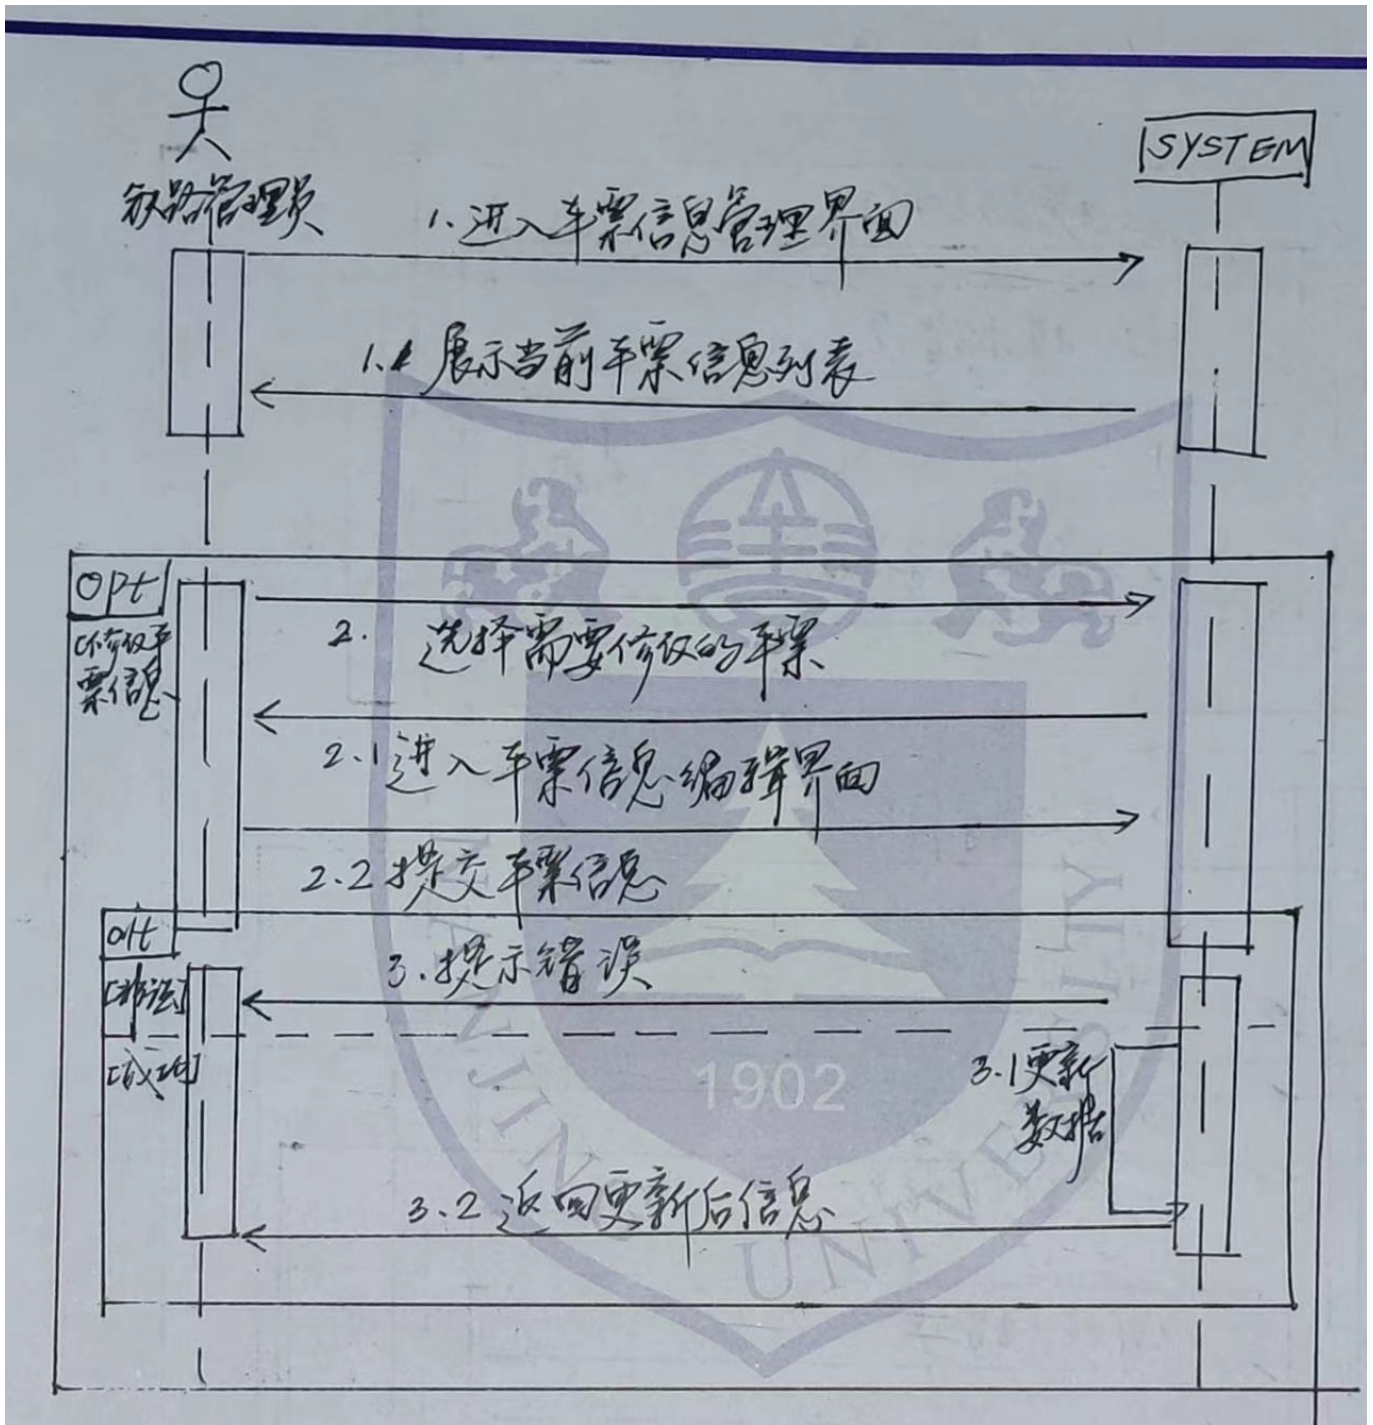 铁路管理员
SYSTEM
1.进入车票信息管理界面
1.1 展示当前车票信息列表
opt
[修改车
票信息
2. 选择需要修改的车票
2.1进入车票信息编辑界面
2.2提交车票信息
alt
[非法]
3.提示错误
[成功]
3.1更新
数据
3.2返回更新后信息
1902
NANJING UNIVERSITY